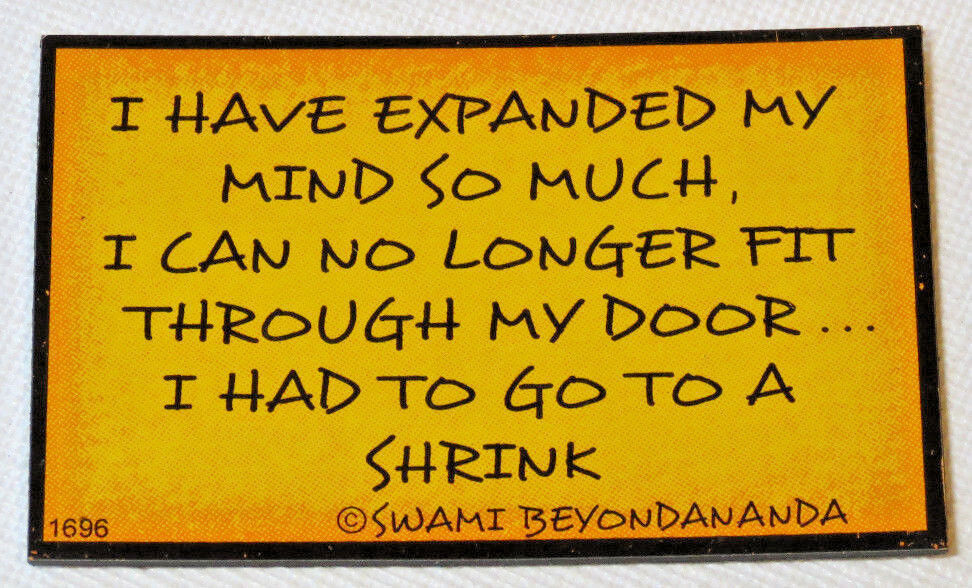 I HAVE EXPANDED MY
MIND SO MUCH,
I CAN NO LONGER FIT
THROUGH MY DOOR...
I HAD TO GO TO A
SHRINK
1696
©SWAMI BEYONDANANDA